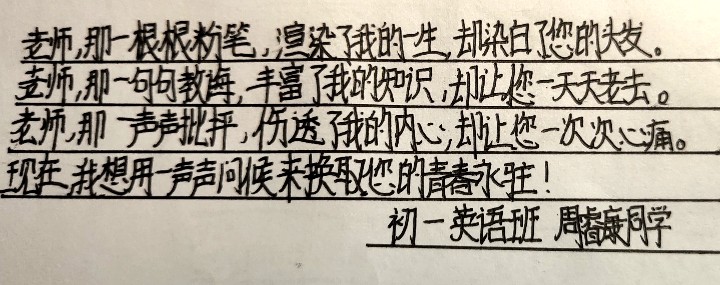 老师,那一根根粉笔,渲染了我的一生,却染白了您的头发。
老师,那一句句教诲,丰富了我的知识,却让您一天天老去。
老师,那一声声批评,伤透了我的内心,却让您一次次心痛。
现在,我想用一声声问候来换取您的青春永驻!
初一英语班 周睿康同学